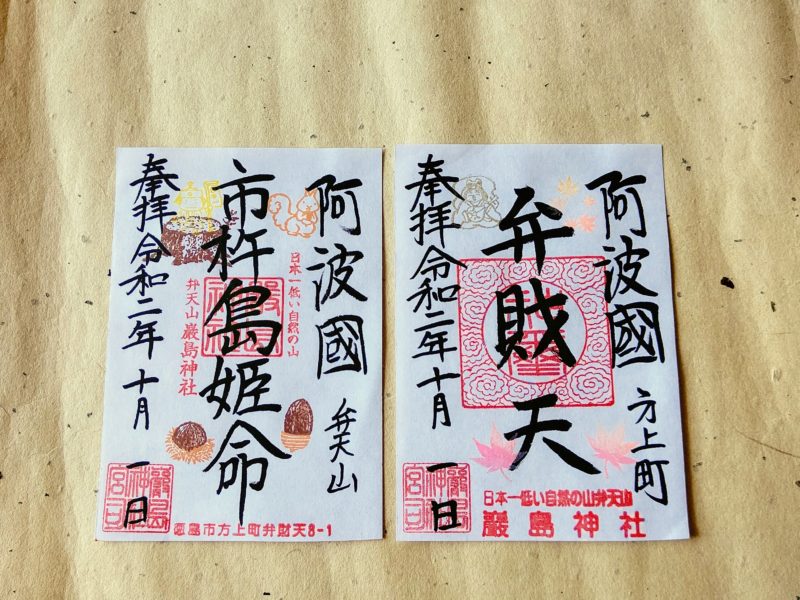 阿波國
弁天山
市杵島姫命
日本一低い自然の山
弁天山 嚴島神社
奉拝 令和二年 十月 一日
嚴島神社宮司
徳島市方上町弁財天8-1
阿波國
方上町
弁財天
奉拝 令和二年 十月 一日
嚴島神社宮司
日本一低い自然の山弁天山
嚴島神社